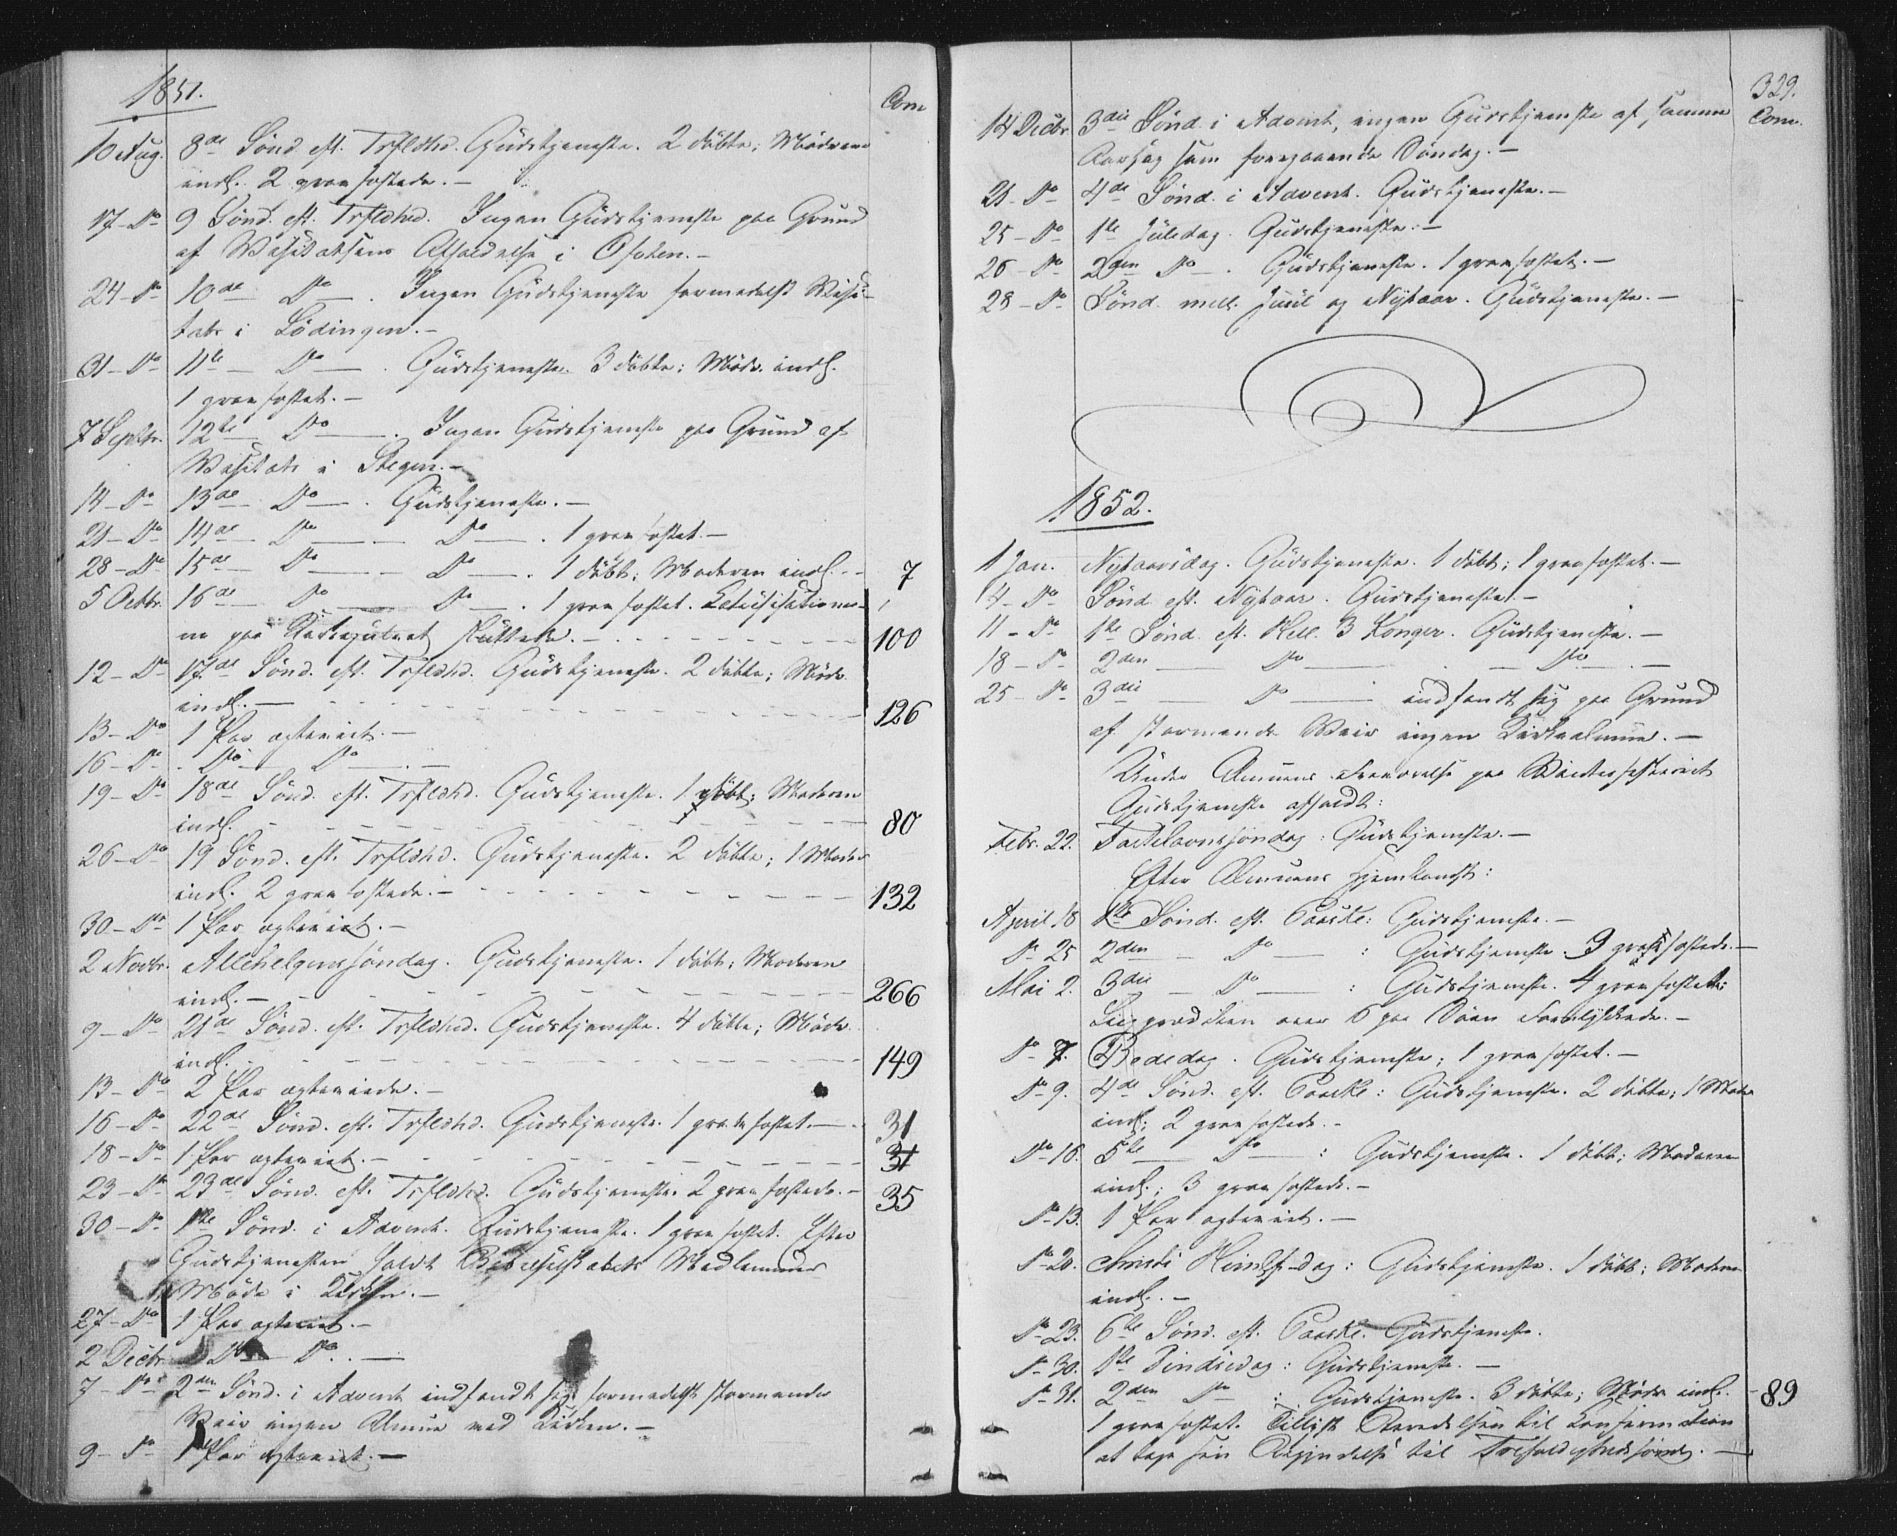 1851.
Com
10 Aug. 8de Sønd. eft. Trfldhd. Gudstjeneste. 2 døbte; Mødrene
indl. 2 graafæstede. –
17 – Do 9 Sønd. eft. Trfldhd. Ingen Gudstjeneste paa Grund
af Visitatsens Afholdelse i Ofoten. –
24 – Do 10de Do. Ingen Gudstjeneste formedelst Visi-
tats i Lødingen. –
31 – Do 11te – Do – . Gudstjeneste. 3 døbte; Mødr. indl.
1 graafæstet. –
7 Septbr. 12te Do – . Ingen Gudstjeneste paa Grund af
Visitats i Stegen. –
14 – Do 13de Do – . Gudstjeneste. –
21 – Do 14de Do – Do – . 1 graafæstet. –
28 – Do 15de Do – Do – . 1 døbt; Moderen indl. – 7
5 Octbr. 16de Do – Do – . 1 graafæstet.
100
12 – Do 17de Sønd. eft. Trfldhd. Gudstjeneste. 2 døbte; Mødr.
indl. – 126
13 – Do 1 Par egteviet. –
16 – Do Do Do –
19 – Do 18de Sønd. eft. Trfldhd. Gudstjeneste. 1 døbt; Moderen
indl. 80
26 – Do 19 Sønd. eft. Trfldhd. Gudstjeneste. 2 døbte; 1 Moder
indl. 2 graafæstede. – 132
30 – Do 1 Par egteviet. –
2 Novbr. Allehelgenssøndag. Gudstjeneste. 1 døbt; Moderen
indl. – 266
9 – Do 21de Sønd. eft. Trfldhd. Gudstjeneste. 4 døbte; Mødr.
indl. 149
13 – Do 2 Par egteviede. –
16 – Do 22de Sønd. eft. Trfldhd. Gudstjeneste. 1 graafæstet. – 31
18 – Do 1 Par egteviet. – 31
23 – Do 23de Sønd. eft. Trfldhd. Gudstjeneste. 2 graafæstede. – 35
30 – Do 1ste Sønd. i Advent. Gudstjeneste. 1 graafæstet. Efter
Gudstjenesten holdt Bibelselskabets Medlemmer
Møde i Kirken. –
27 – Do 1 Par egteviet. –
2 Decbr. Do Do. –
7 – Do 2den Sønd. i Advent indfandt sig formedelst stormende
Veir ingen Almue ved Kirken. –
9 – Do 1 Par egteviet. –
329.
Com.
14 Decbr. 3die Sønd. i Advent, ingen Gudstjeneste af samme
Aarsag som foregaaende Søndag. –
21 – Do 4de Sønd. i Advent. Gudstjeneste. –
25 – Do 1ste Juledag. Gudstjeneste. –
26 – Do 2den Do – . Gudstjeneste. 1 graafæstet. –
28 – Do Sønd. mell. Juul og Nytaar. Gudstjeneste. –
1852.
1 Jan. Nytaarsdag. Gudstjeneste. 1 døbt; 1 graafæstet. –
4 – Do Sønd. eft. Nytaar. Gudstjeneste. –
11 – Do 1ste Sønd. eft. Hell. 3 Konger. Gudstjeneste. –
18 – Do 2den – Do – . – Do – . –
25 – Do 3die – Do – indfandt sig paa Grund
af stormende Veir ingen Kirkealmue. –
Under Almuens Fraværelse paa Vinterfiskeriet
Gudstjeneste afholdt:
Febr. 22. Fastelavnssøndag: Gudstjeneste. –
Efter Almuens Hjemkomst:
April 18 1ste Sønd. eft. Paaske: Gudstjeneste. –
Do 25 2den – Do – : Gudstjeneste. 9 graafæstede. –
Mai 2. 3die – Do – : Gudstjeneste. 4 graafæstede;
Liigprædiken over 6 paa Søen Forulykkede. –
Do 7. Bededag. Gudstjeneste; 1 graafæstet. –
Do 9. 4de Sønd. eft. Paaske: Gudstjeneste. 2 døbte; 1 Moder
indl; 2 graafæstede. –
Do 16. 5te – Do – : Gudstjeneste. 1 døbt; Moderen
indl.; 3 graafæstede. –
Do 13. 1 Par egteviet. –
Do 20. Christi Himlf.-dag: Gudstjeneste. 1 døbt; Moderen
indl. –
Do 23. 6te Sønd. eft. Paaske. Gudstjeneste.
Do 30. 1ste Pindsedag: Gudstjeneste. –
Do 31. 2den Do : Gudstjeneste. 3 døbte; Mødr. indl. – 89
1 graafæstet. Tillyst Beredelsen til Confirmation
at tage sin Begyndelse til Trefoldighedssønd. –